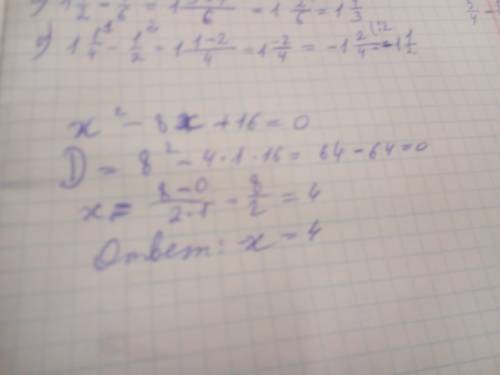 1 1/4 - 1/2 = 1 1-2/4 = 1 -2/4 = -1 2/4 = -1 1/2
x² - 8x + 16 = 0
D = 8² - 4·1·16 = 64 - 64 = 0
x = 8-0/2·1 = 8/2 = 4
Ответ: x = 4